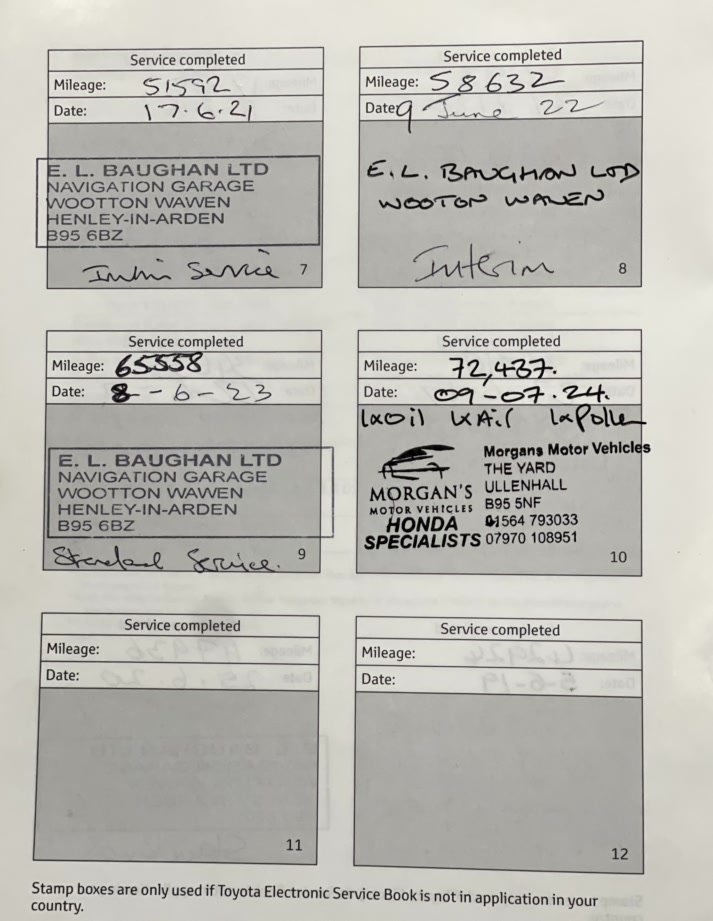 Service completed
Mileage: 51592
Date: 17.6.21
E. L. BAUGHAN LTD
NAVIGATION GARAGE
WOOTTON WAWEN
HENLEY-IN-ARDEN
B95 6BZ
Service 7
Service completed
Mileage: 58632
Date: 9 June 22
E.L. BAUGHAN LTD
WOOTON WAWEN
Interim
8
Service completed
Mileage: 65558
Date: 8-6-23
E. L. BAUGHAN LTD
NAVIGATION GARAGE
WOOTTON WAWEN
HENLEY-IN-ARDEN
B95 6BZ
Standard Service. 9
Service completed
Mileage: 72,437.
Date: 09-07.24.
1xOil 1xAir 1xPollen
MORGAN'S
MOTOR VEHICLES
HONDA
SPECIALISTS
Morgans Motor Vehicles
THE YARD
ULLENHALL
B95 5NF
01564 793033
07970 108951
10
Service completed
Mileage:
Date:
11
Service completed
Mileage:
Date:
12
Stamp boxes are only used if Toyota Electronic Service Book is not in application in your
country.